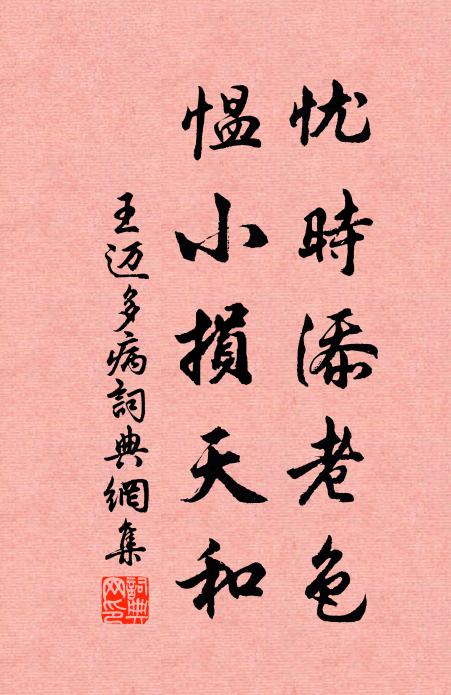 忧時添老色
愠小損天和
王迈多病詞典網集
詞典網印